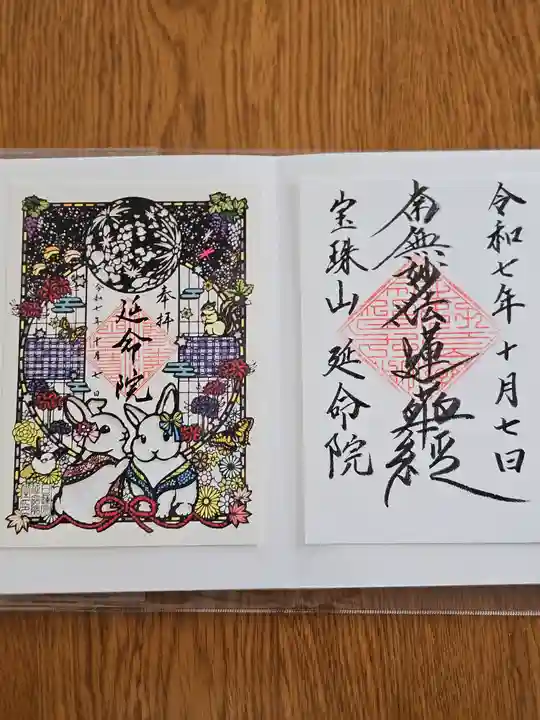 令和七年十月七日
南無妙法蓮華経
宝珠山 延命院
奉拝
延命院
令和七年十月 日